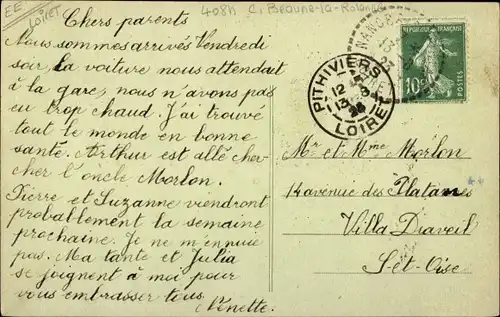 EE
LOIRET
408h C. Beaune-la-Rolande
Chers parents
Nous sommes arrivés Vendredi
soir, la voiture nous attendait
à la gare, nous n'avons pas
eu trop chaud. J'ai trouvé
tout le monde en bonne
santé. Arthur est allé cher-
cher l'oncle Morlon.
Pierre et Suzanne viendront
probablement la semaine
prochaine. Je ne m'ennuie
pas. Ma tante et Julia
se joignent à moi pour
vous embrasser tous
Venette.
NANC
13
23
RÉPUBLIQUE FRANÇAISE
10c
POSTES
PITHIVIERS
12
13
LOIRET
Mr et Mme Morlon
14 avenue des Platanes
Villa Draveil
S-et-Oise